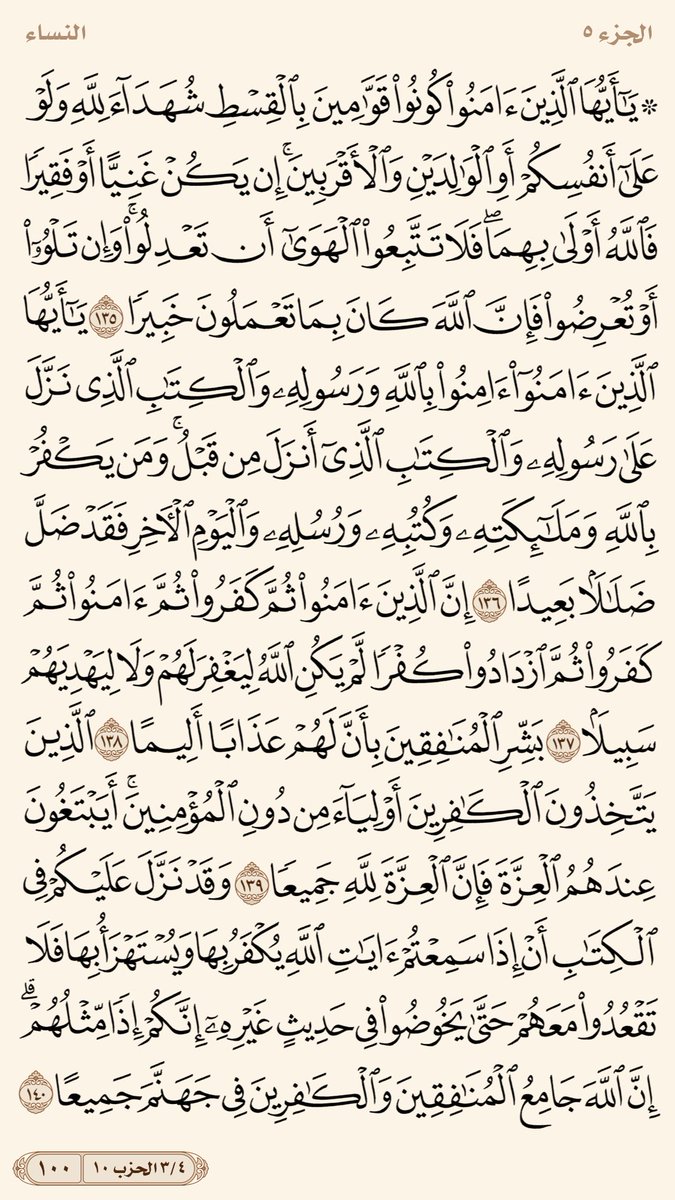 الجزء ٥ النساء
۞ يَٰٓأَيُّهَا ٱلَّذِينَ ءَامَنُوا۟ كُونُوا۟ قَوَّٰمِينَ بِٱلْقِسْطِ شُهَدَآءَ لِلَّهِ وَلَوْ
عَلَىٰٓ أَنفُسِكُمْ أَوِ ٱلْوَٰلِدَيْنِ وَٱلْأَقْرَبِينَ ۚ إِن يَكُنْ غَنِيًّا أَوْ فَقِيرًا
فَٱللَّهُ أَوْلَىٰ بِهِمَا ۖ فَلَا تَتَّبِعُوا۟ ٱلْهَوَىٰٓ أَن تَعْدِلُوا۟ ۚ وَإِن تَلْوُۥٓا۟
أَوْ تُعْرِضُوا۟ فَإِنَّ ٱللَّهَ كَانَ بِمَا تَعْمَلُونَ خَبِيرًا ١٣٥ يَٰٓأَيُّهَا
ٱلَّذِينَ ءَامَنُوٓا۟ ءَامِنُوا۟ بِٱللَّهِ وَرَسُولِهِۦ وَٱلْكِتَٰبِ ٱلَّذِى نَزَّلَ
عَلَىٰ رَسُولِهِۦ وَٱلْكِتَٰبِ ٱلَّذِىٓ أَنزَلَ مِن قَبْلُ ۚ وَمَن يَكْفُرْ
بِٱللَّهِ وَمَلَٰٓئِكَتِهِۦ وَكُتُبِهِۦ وَرُسُلِهِۦ وَٱلْيَوْمِ ٱلْءَاخِرِ فَقَدْ ضَلَّ
ضَلَٰلًۢا بَعِيدًا ١٣٦ إِنَّ ٱلَّذِينَ ءَامَنُوا۟ ثُمَّ كَفَرُوا۟ ثُمَّ ءَامَنُوا۟ ثُمَّ
كَفَرُوا۟ ثُمَّ ٱزْدَادُوا۟ كُفْرًا لَّمْ يَكُنِ ٱللَّهُ لِيَغْفِرَ لَهُمْ وَلَا لِيَهْدِيَهُمْ
سَبِيلًۢا ١٣٧ بَشِّرِ ٱلْمُنَٰفِقِينَ بِأَنَّ لَهُمْ عَذَابًا أَلِيمًا ١٣٨ ٱلَّذِينَ
يَتَّخِذُونَ ٱلْكَٰفِرِينَ أَوْلِيَآءَ مِن دُونِ ٱلْمُؤْمِنِينَ ۚ أَيَبْتَغُونَ
عِندَهُمُ ٱلْعِزَّةَ فَإِنَّ ٱلْعِزَّةَ لِلَّهِ جَمِيعًا ١٣٩ وَقَدْ نَزَّلَ عَلَيْكُمْ فِى
ٱلْكِتَٰبِ أَنْ إِذَا سَمِعْتُمْ ءَايَٰتِ ٱللَّهِ يُكْفَرُ بِهَا وَيُسْتَهْزَأُ بِهَا فَلَا
تَقْعُدُوا۟ مَعَهُمْ حَتَّىٰ يَخُوضُوا۟ فِى حَدِيثٍ غَيْرِهِۦٓ ۚ إِنَّكُمْ إِذًا مِّثْلُهُمْ ۗ
إِنَّ ٱللَّهَ جَامِعُ ٱلْمُنَٰفِقِينَ وَٱلْكَٰفِرِينَ فِى جَهَنَّمَ جَمِيعًا ١٤٠
٣/٤ الحزب ١٠ ١٠٠